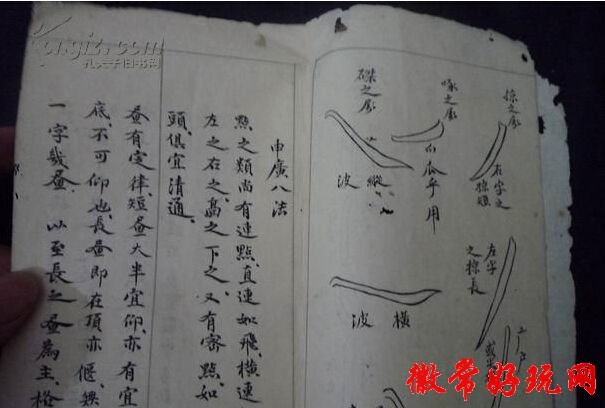 掠之勢
右字之
掠短
左字
之掠長
啄之勢
白瓜乎用
磔之勢
縱波
橫波
申廣八法
點之類尚有連點、直連如飛、橫連
左之右之、高之下之、又有密點、如
頭、俱宜清通、
畫有定律、短畫大半宜仰、亦有宜
底、不可仰也、長畫即在頂亦偃、無
一字幾畫、以至長之畫為主、格
孔夫子旧书网
徽常好玩网